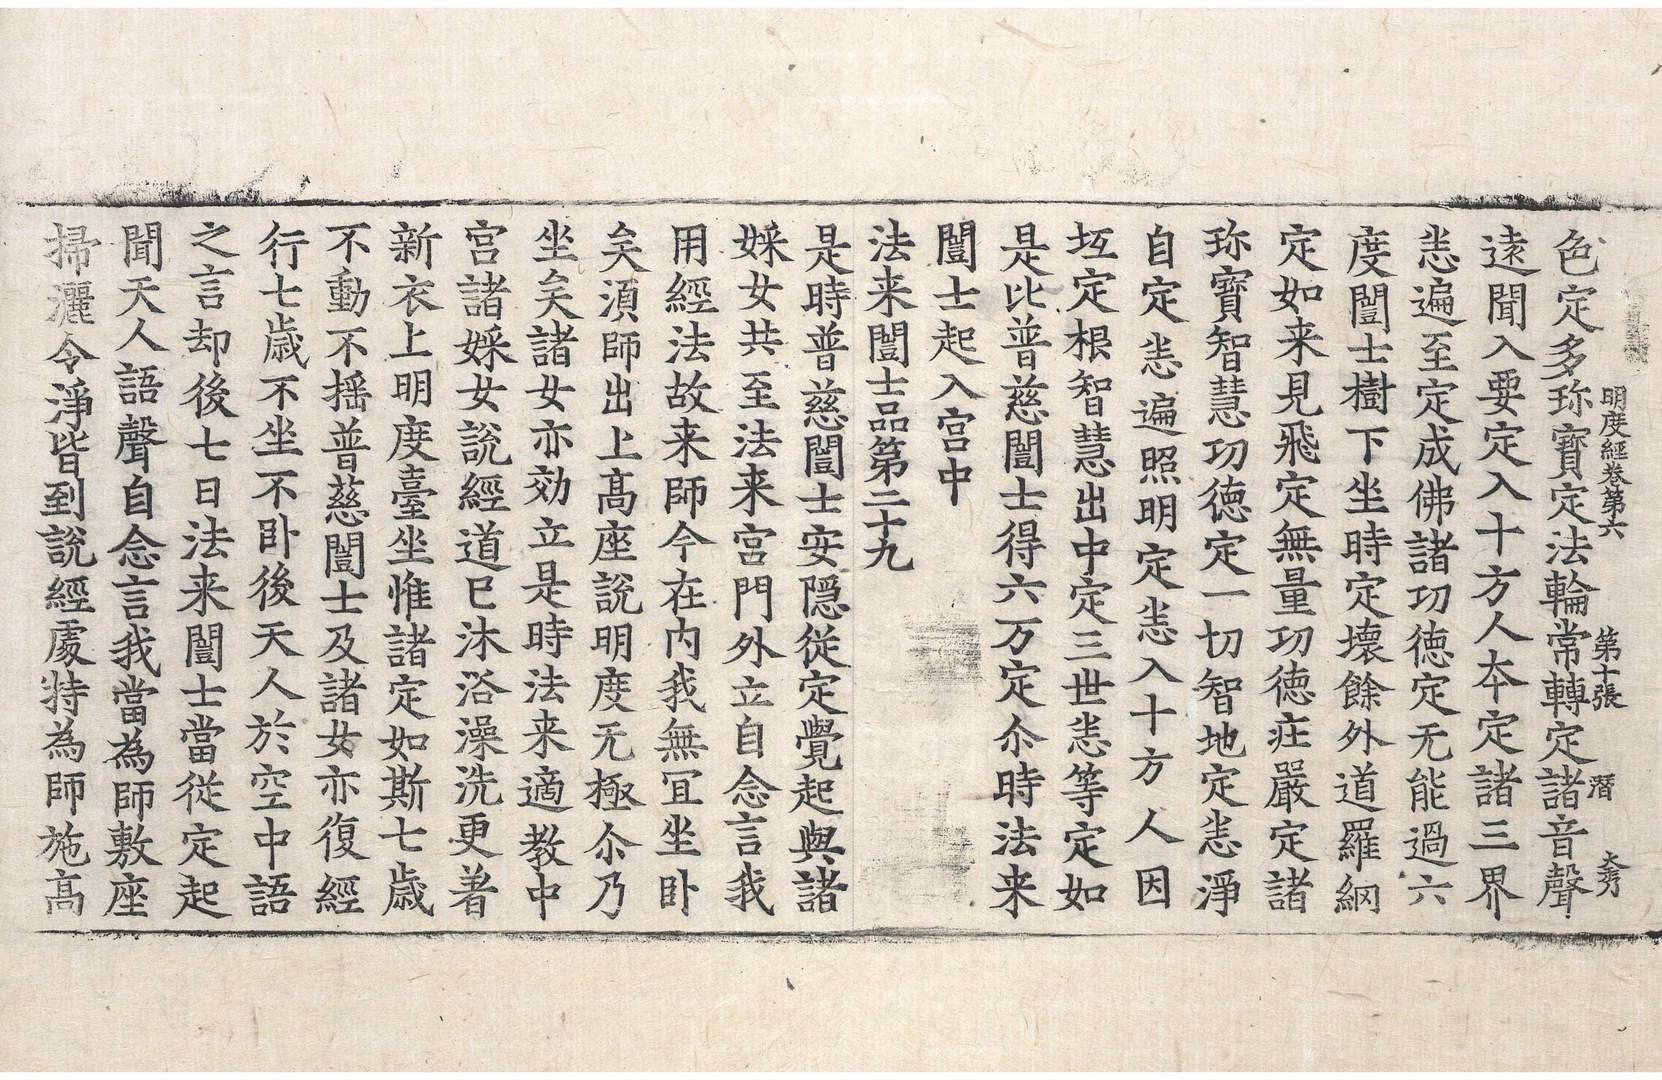 明度經卷第六 第十張 潛 大秀
色定多珎寶定法輪常轉定諸音聲
遠聞入要定入十方人夲定諸三界
恙遍至定成佛諸功德定无能過六
度闓士樹下坐時定壞餘外道羅網
定如来見飛定無量功德庄嚴定諸
珎寶智慧功德定一切智地定恙淨
自定恙遍照明定恙入十方人因
坘定根智慧出中定三世恙等定如
是比普慈闓士得六万定尒時法来
闓士起入宮中
法来闓士品第二十九
是時普慈闓士安隱從定覺起與諸
婇女共至法来宮門外立自念言我
用經法故来師今在内我無冝坐卧
矣湏師出上髙座說明度无極尒乃
坐矣諸女亦効立是時法来適教中
宮諸婇女說經道已沐浴澡洗更著
新衣上明度臺坐惟諸定如斯七歲
不動不摇普慈闓士及諸女亦復經
行七歲不坐不卧後天人於空中語
之言却後七日法来闓士當從定起
聞天人語聲自念言我當為師敷座
掃灑令淨皆到說經處特為師施髙